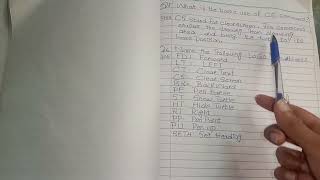 Q1 What is the basic use of CS command?
Ans CS stand for clearscreen. This command
erases the drawing from drawing
area and bring the turtle to its
home Position.
Q2 Name the following Logo
FD: Forward
LT: LEFT
CT: Clear Text
CS: Clear Screen
BK: Backward
PE: Pen Eraser
ST: Show Turtle
HT: Hide Turtle
RT: Right
PP: Pen Paint
PU: Pen up
SETH: Set Heading